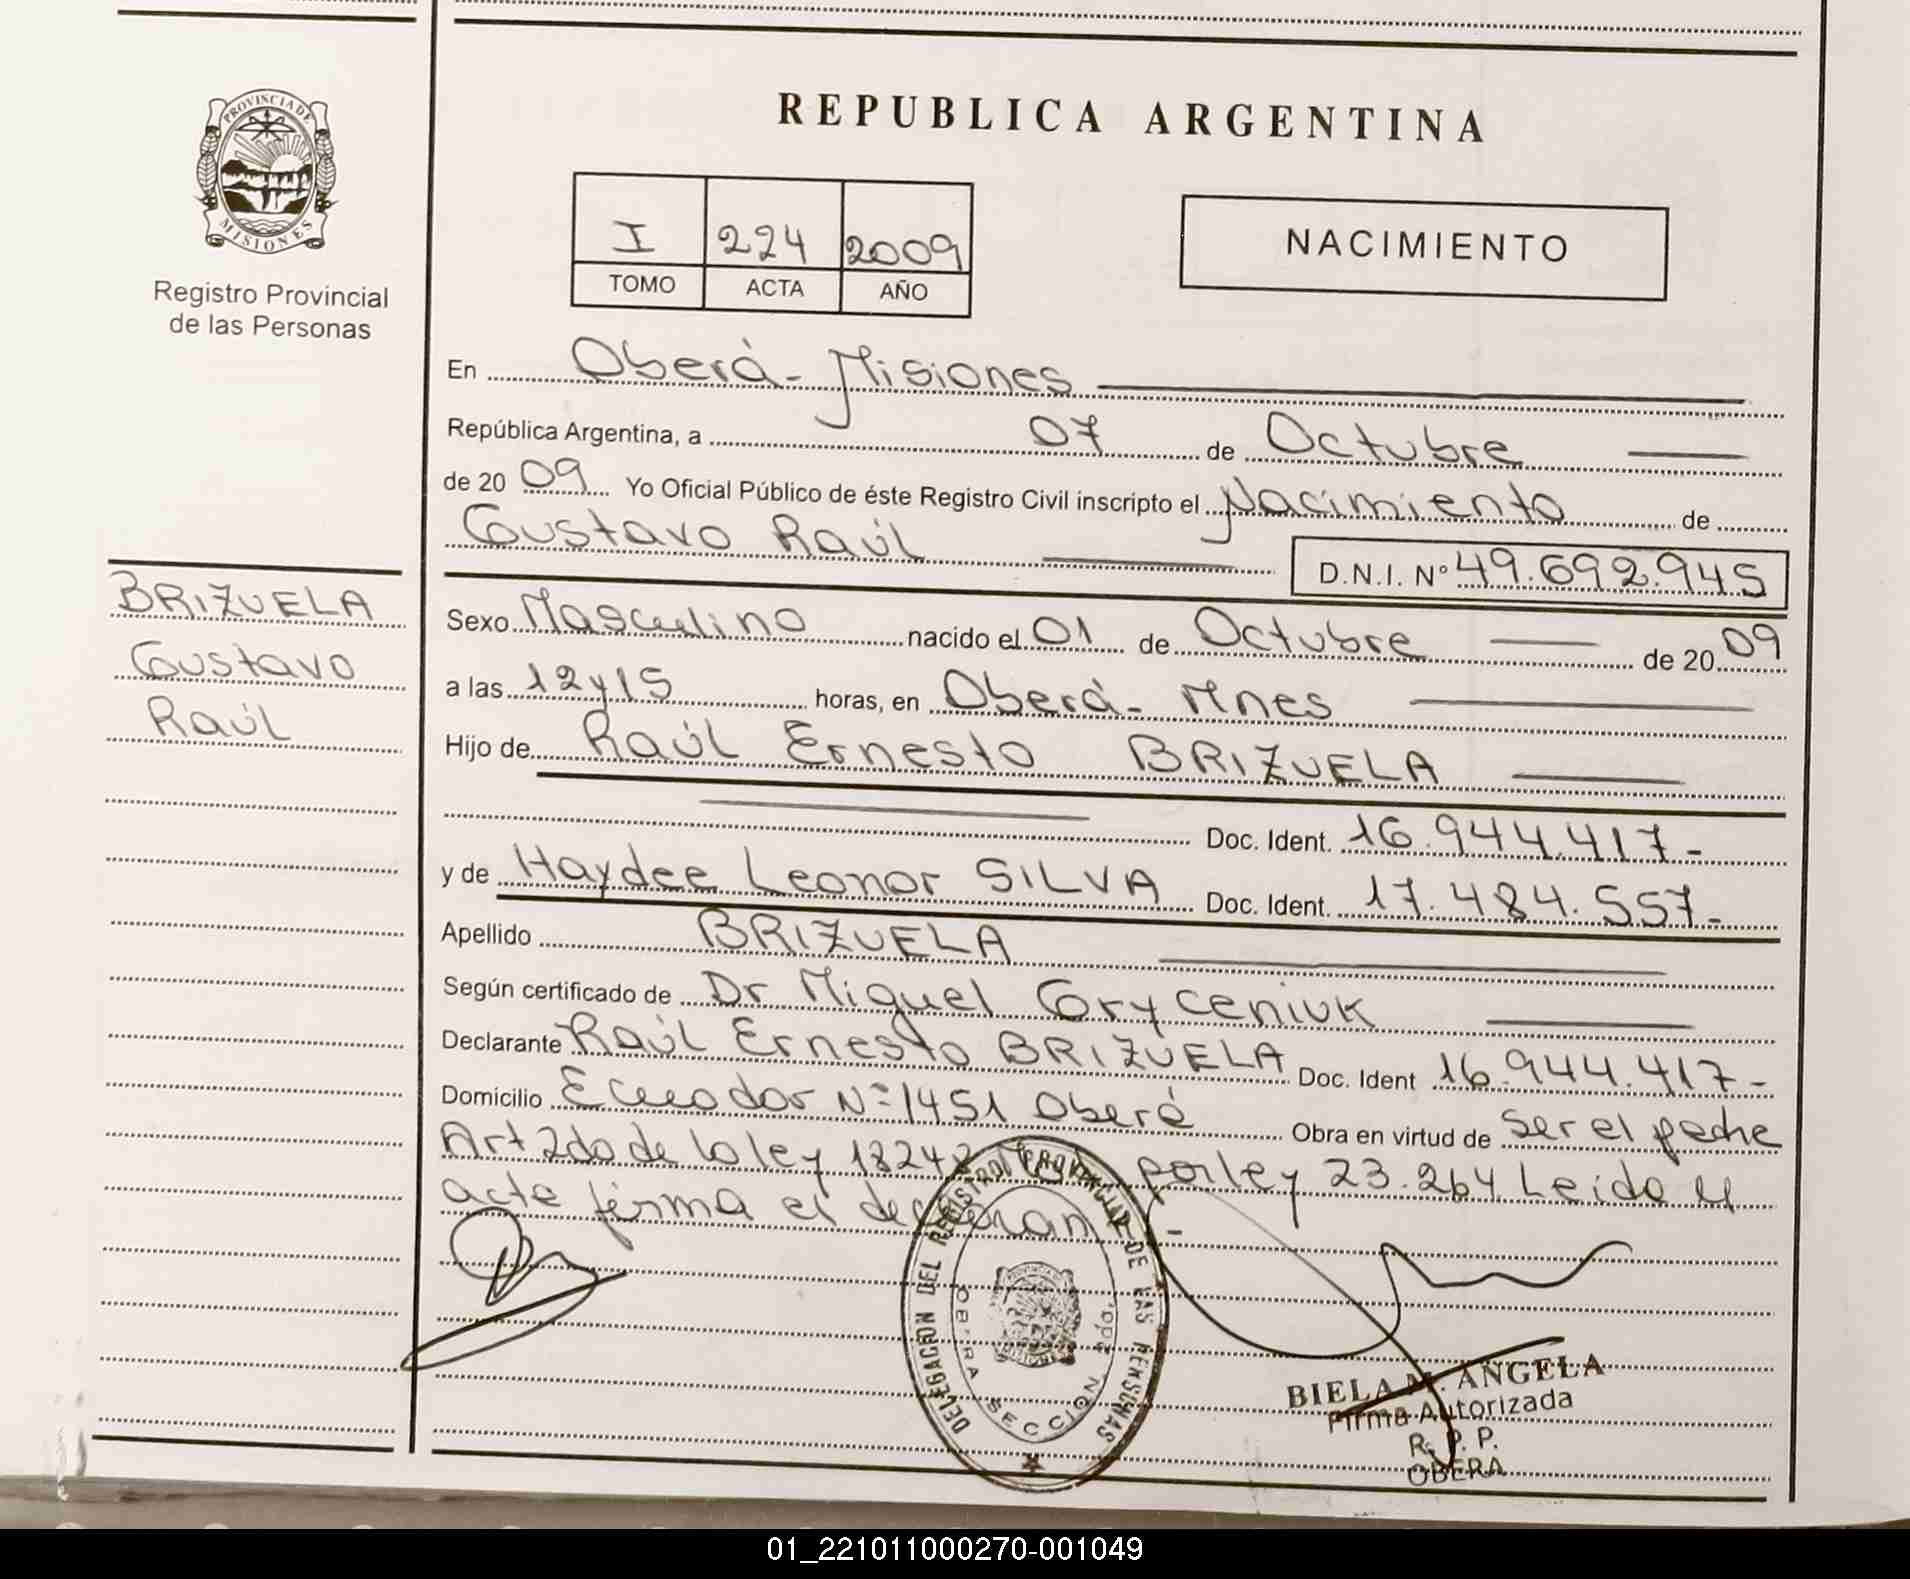 PROVINCIA DE
MISIONES
Registro Provincial
de las Personas
BRIZUELA
Gustavo
Raúl
REPUBLICA ARGENTINA
I 224 2009
TOMO ACTA AÑO
NACIMIENTO
En Oberá - Misiones
República Argentina, a 07 de Octubre
de 20 09 Yo Oficial Público de éste Registro Civil inscripto el Nacimiento de
Gustavo Raúl D.N.I. Nº 49.692.945
Sexo Masculino nacido el 01 de Octubre de 20 09
a las 12 y 15 horas, en Oberá - Mnes
Hijo de Raúl Ernesto BRIZUELA
Doc. Ident. 16.944.417-
y de Haydee Leonor SILVA Doc. Ident. 17.484.557-
Apellido BRIZUELA
Según certificado de Dr Miguel Goryceniuk
Declarante Raúl Ernesto BRIZUELA Doc. Ident 16.944.417-
Domicilio Ecuador Nº 1451 Oberá Obra en virtud de ser el padre
Art 2do de la ley 18248 por ley 23.264 Leido el
acta firma el declarante -
DELEGACION DEL REGISTRO PROVINCIAL DE LAS PERSONAS
OBERA SECCION 2da.
BIELA M. ANGELA
Firma Autorizada
R. P. P.
OBERA
01_221011000270-001049